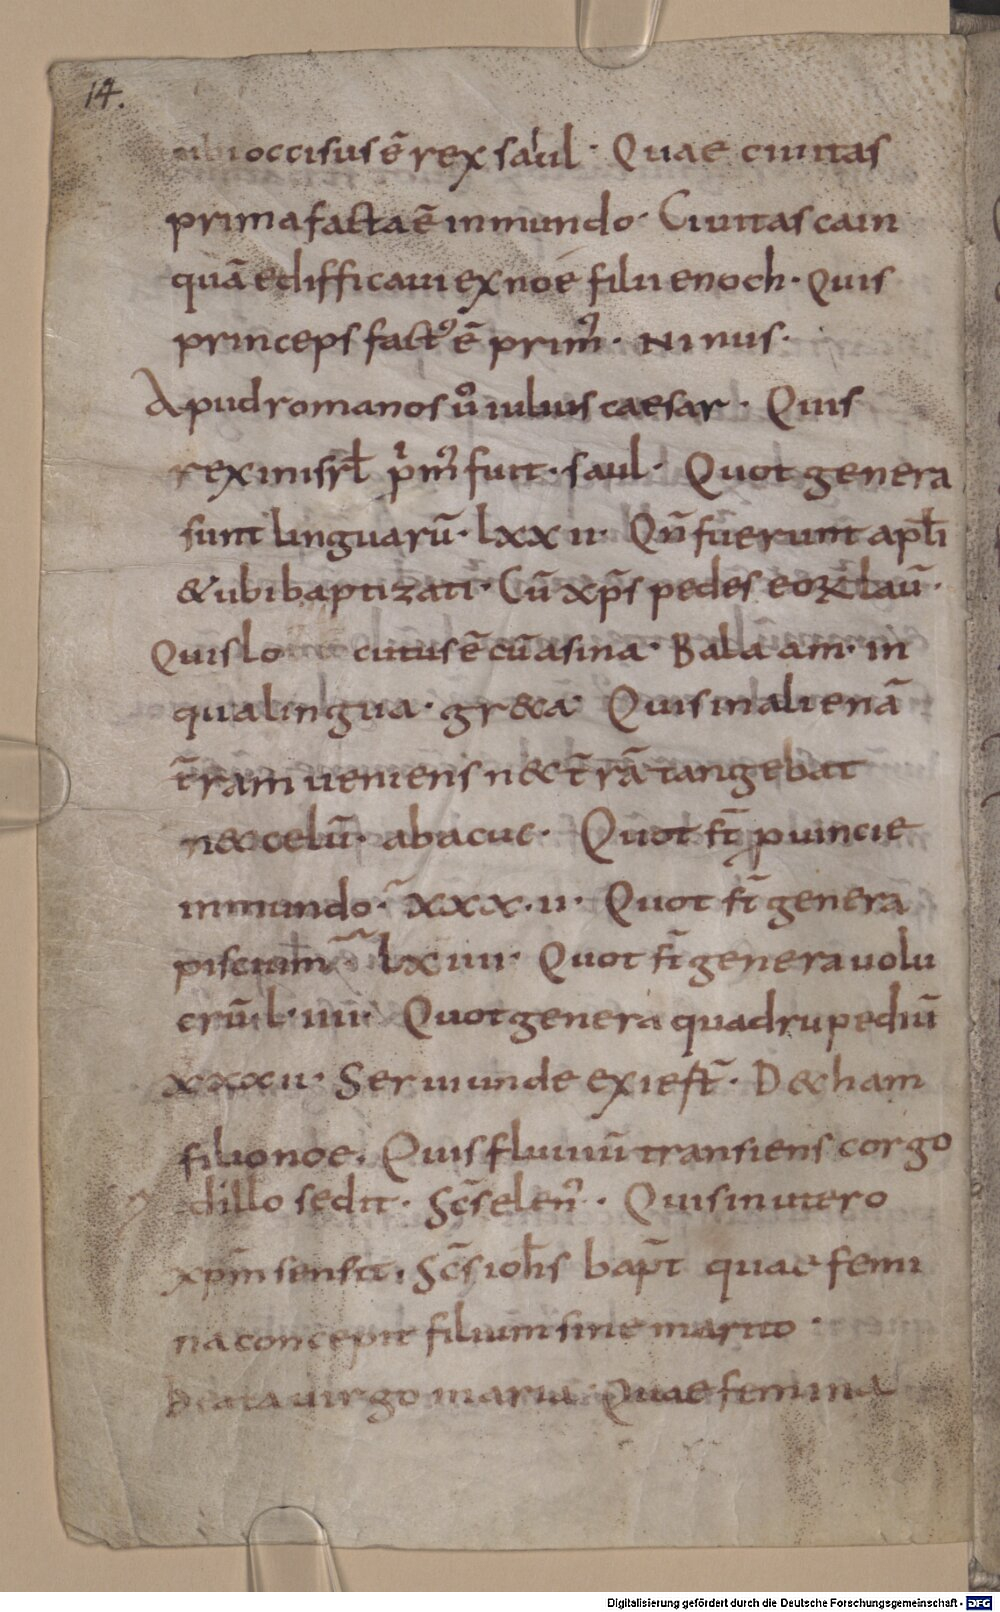 14.
ubi occisus ē rex saul· Quae ciuitas
prima facta ē in mundo· Ciuitas cain
quā edifficaui ex noe filii enoch· Quis
princeps fact᾿ ē prim᾿· Ninus·
Apud romanos ů iulius caesar· Quis
rex in isrł p̍m᾿ fuit· saul· Quot genera
sunt linguarū· lxx ii· Qn̄ fuerunt apłi
& ubi baptizati· Cū xp̄s pedes eoꝝ lauꝰ·
Quis lo cutus ē cū asina· Bala am· in
qua lingua· gr&a· Quis in alienā
t̄ram ueniens n& t̄rā tangebat
n& celū· abacuc· Quot st̄ ꝓuincie
in mundo· c̄xxx·ii· Quot st̄ genera
piscium lxiiii· Quot st̄ genera uolu
crū· l·iiii· Quot genera quadrupediū
xxxii· Serui unde exiest̄· D& cham
filio noe. Quis fluuiū transiens corgo
dillo sedit· Sc̄s elen᾿· Quis in utero
xpm̄ sensit; Sc̄s ioħs bap̄t quae femi
na concepit filium sine marito·
beata uirgo maria· Quae femina
Digitalisierung gefördert durch die Deutsche Forschungsgemeinschaft - DFG